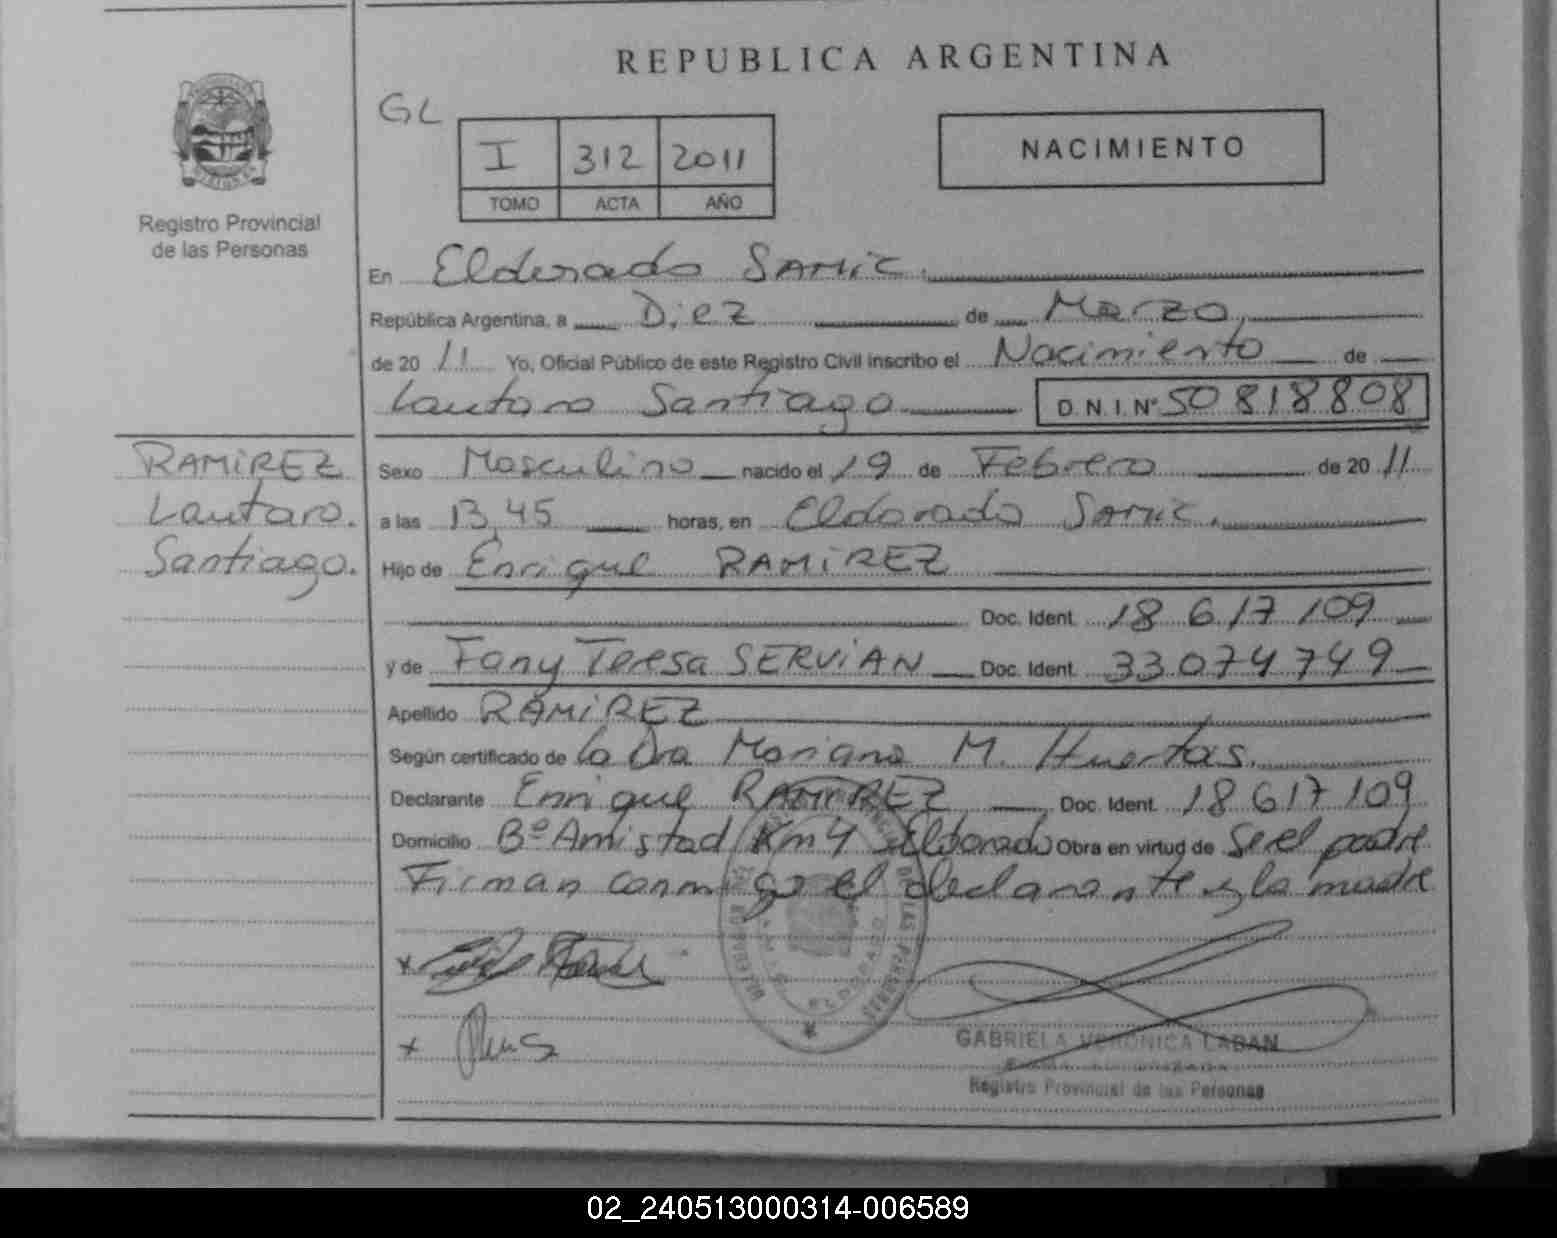 REPUBLICA ARGENTINA
GL
I 312 2011
TOMO ACTA AÑO
NACIMIENTO
Registro Provincial
de las Personas
En Eldorado SAMIC.
República Argentina, a Diez de Marzo
de 2011 Yo, Oficial Público de este Registro Civil inscribo el Nacimiento de
Lautaro Santiago D.N.I. Nº 50818808
RAMIREZ
Lautaro.
Santiago.
Sexo Masculino nacido el 19 de Febrero de 2011
a las 13,45 horas, en Eldorado SAMIC.
Hijo de Enrique RAMIREZ
Doc. Ident. 18 617 109
y de Fany Teresa SERVIAN Doc. Ident. 33.074749
Apellido RAMIREZ
Según certificado de la Dra Mariana M. Huertas.
Declarante Enrique RAMIREZ Doc. Ident. 18 617 109
Domicilio Bº Amistad Km 4 Eldorado Obra en virtud de Ser el padre
Firman conmigo el declarante y la madre
x
x
GABRIELA VERONICA LABAN
Registro Provincial de las Personas
02_240513000314-006589